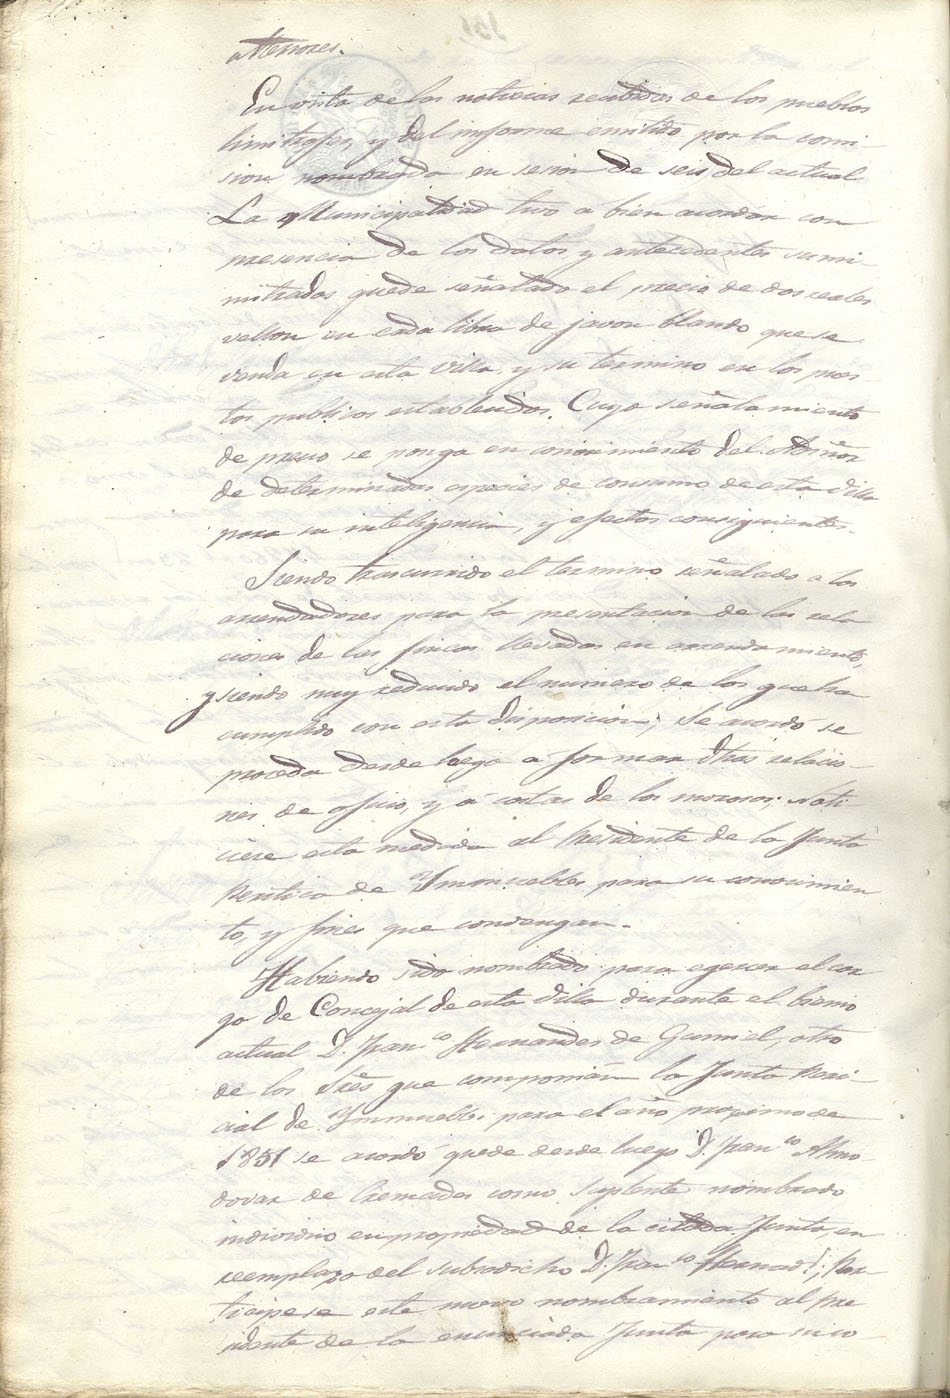 anteriores.
En vista de las noticias recibidas de los pueblos
limitrofes, y del informe emitido por la comi-
sion nombrada en sesion de seis del actual
La Municipalidad tuvo a bien acordar con
presencia de los datos y antecedentes sumi-
nistrados quede señalado el precio de dos reales
vellon en cada libra de javon blando que se
venda en esta Villa y su termino en los pues
tos publicos establecidos. Cuyo señalamiento
de precio se ponga en conocimiento del Admõr
de determinadas especies de consumo de esta Villa
para su inteligencia, y efectos consiguientes.
Siendo trascurrido el termino señalado a los
arrendadores para la presentacion de las rela
ciones de las fincas llevadas en arrendamiento,
y siendo muy reducido el numero de los que ha
cumplido con esta disposicion; Se acordó se
proceda desde luego a formar dhas relacio-
nes de oficio, y á costas de los morosos; Noti
ciese esta medida al Presidente de la Junta
Pericial de Ynmuebles para su conocimien
to, y fines que convengan.
Habiendo sido nombrado para egercer el car
go de Concejal de esta Villa durante el bienio
actual D. Franco Hernandes de Gumiel, otro
de los Sres que componian la Junta Peri-
cial de Ynmuebles para el año proximo de
1851 se acordó quede desde luego D. Franco Almo-
dovar de Cremades como suplente nombrado
individuo en propiedad de la citada Junta, en
reemplazo del susodicho D. Franco Hernand.; Par-
ticipese este nuevo nombramiento al Pre
sidente de la enunciada Junta para su co